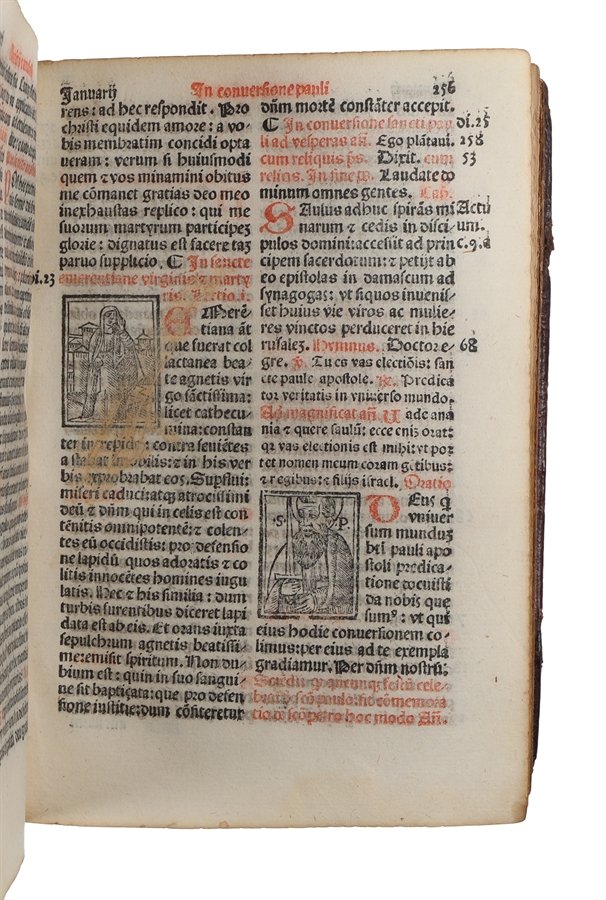 Januarij
In conversione pauli
256
rens: ad hec respondit. Pro
christi equidem amore: a vo-
bis membratim concidi opta
ueram: verum si huiusmodi
quem & vos minamini obitus
me cōmanet gratias deo meo
inexhaustas replico: qui me
suorum martyrum participeʒ
glorie: dignatus est facere taʒ
paruo supplicio. ¶ In sancte
di.23
emerentiane virginis & marty
ris. Lectio.i.
EMerē-
tiana āt
que fuerat col
lactanea bea-
te agnetis vir
go sāctissima:
licet cathecu-
mina: constan
ter intrepide: contra seuiētes
astabat imobilis: & in his ver
bis exprobrabat eos. Supsui:
miseri caduci: atqꝫ atrocissimi
deū & dūm qui in celis est con
tēnitis omnipotentē: & colen-
tes eū occidistis: pro defensio
ne lapidū quos adoratis & co
litis innocētes homines iugu
latis. Hec & his similia: dum
turbis furentibus diceret lapi
data est ab eis. Et orans iuxta
sepulchrum agnetis beatissi-
me: emisit spiritum. Non du-
bium est: quin in suo sangui-
ne sit baptiçata: que pro defen
sione iustitie: dum cōfiteretur
dūm mortē constāter accepit.
¶ In conversione sancti pau
di.25
li ad vesperas añ. Ego plātaui.
258
cum reliquis p̄s. Dixit. cum
53
relicis. In fine p̄s. Laudate do
minum omnes gentes. Cab.
SAulus adhuc spirās mi
Actū
narum & cedis in disci
um.
pulos domini: accessit ad prin
c.9.a
cipem sacerdotum: & petijt ab
eo epistolas in damascum ad
synagogas: vt siquos inuenis-
set huius vie viros ac mulie-
res vinctos perduceret in hie
rusaleʒ. Hymnus. Doctor e-
68
gre. ℣. Tu es vas electiōis: san
cte paule apostole. ℟. Predica
tor veritatis in vniuerso mundo.
Ad magnificat añ. Uade ana
nia & quere saulū: ecce enīʒ orat:
qꝛ vas electionis est mihi: vt por
tet nomen meum coram gētibus:
& regibus: & filijs israel. Oratio
S. P.
DEus q̄
vniuer
sum munduʒ
bti pauli apo
stoli predica-
tione docuisti
da nobis que
sum⁹: vt qui
eius hodie conuersionem co-
limus: per eius ad te exempla
gradiamur. Per dūm nostrū.
cūqꝫ festū cele-
brat᷑ sci pauli: fit cōmemora
tio sci petro hoc modo Añ.